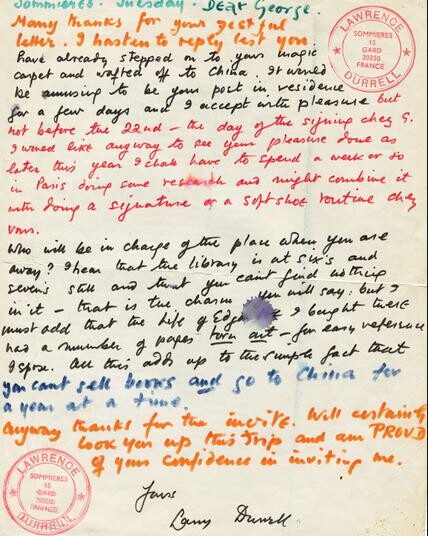 Sommières. Tuesday. Dear George.
Many thanks for your zestful
letter. I hasten to reply lest you
have already stepped on to your magic
carpet and wafted off to China. It would
be amusing to be your poet in residence
for a few days and I accept with pleasure but
not before the 22nd – the day of the signing chez G.
I would like anyway to see your pleasure done as
later this year I shall have to spend a week or so
in Paris doing some research and might combine it
with doing a signature or a soft shoe routine chez
vous.
Who will be in charge of the place when you are
away? I hear that the library is at six's and
seven's still and that you can't find nothing
in it – that is the charm you will say: but I
must add that the Life of Edgar I bought there
had a number of pages torn out – for easy reference
I spose. All this adds up to the simple fact that
you cant sell books and go to China for
a year at a time.
Anyway thanks for the invite. Will certainly
look you up this trip and am PROUD
of your confidence in inviting me.
Yours
Larry Durrell
LAWRENCE
SOMMIERES
15
GARD
30250
FRANCE
DURRELL
LAWRENCE
SOMMIERES
15
GARD
30250
FRANCE
DURRELL